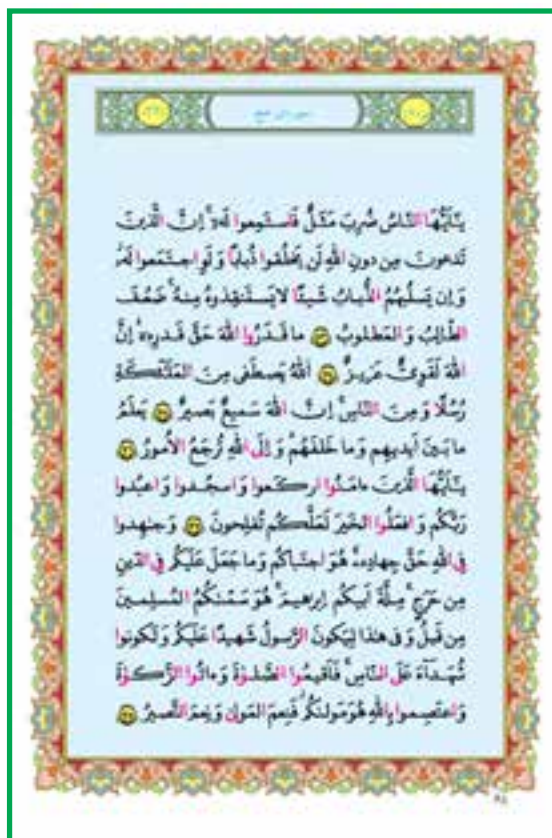 يَـٰٓأَيُّهَا النَّاسُ ضُرِبَ مَثَلٌ فَاستَمِعوا لَهُ إِنَّ الَّذينَ
تَدعونَ مِن دونِ اللهِ لَن يَخلُقوا ذُبابًا وَ لَوِ اجتَمَعوا لَهُ
وَ إِن يَسلُبهُمُ الذُّبابُ شَيئًا لا يَستَنقِذوهُ مِنهُ ضَعُفَ
الطّالِبُ وَ المَطلوبُ ما قَدَرُوا اللهَ حَقَّ قَدرِهِ إِنَّ
اللهَ لَقَوِىٌّ عَزيزٌ اللهُ يَصطَفى مِنَ المَلَـٰٓئِكَةِ
رُسُلًا وَ مِنَ النّاسِ إِنَّ اللهَ سَميعٌ بَصيرٌ يَعلَمُ
ما بَينَ أَيديهِم وَ ما خَلفَهُم وَ إِلَى اللهِ تُرجَعُ الأُمورُ
يَـٰٓأَيُّهَا الَّذينَ ءامَنُوا اركَعوا وَ اسجُدوا وَ اعبُدوا
رَبَّكُم وَ افعَلُوا الخَيرَ لَعَلَّكُم تُفلِحونَ وَ جـٰهِدوا
فِى اللهِ حَقَّ جِهادِهِ هُوَ اجتَباكُم وَ ما جَعَلَ عَلَيكُم فِى الدّينِ
مِن حَرَجٍ مِلَّةَ أَبيكُم إِبرهيمَ هُوَ سَمّـٰكُمُ المُسلِمينَ
مِن قَبلُ وَ فى هـٰذا لِيَكونَ الرَّسولُ شَهيدًا عَلَيكُم وَ تَكونوا
شُهَدآءَ عَلَى النّاسِ فَأَقيمُوا الصَّلوٰةَ وَ ءاتُوا الزَّكوٰةَ
وَ اعتَصِموا بِاللهِ هُوَ مَولـٰكُم فَنِعمَ المَولىٰ وَ نِعمَ النَّصيرُ